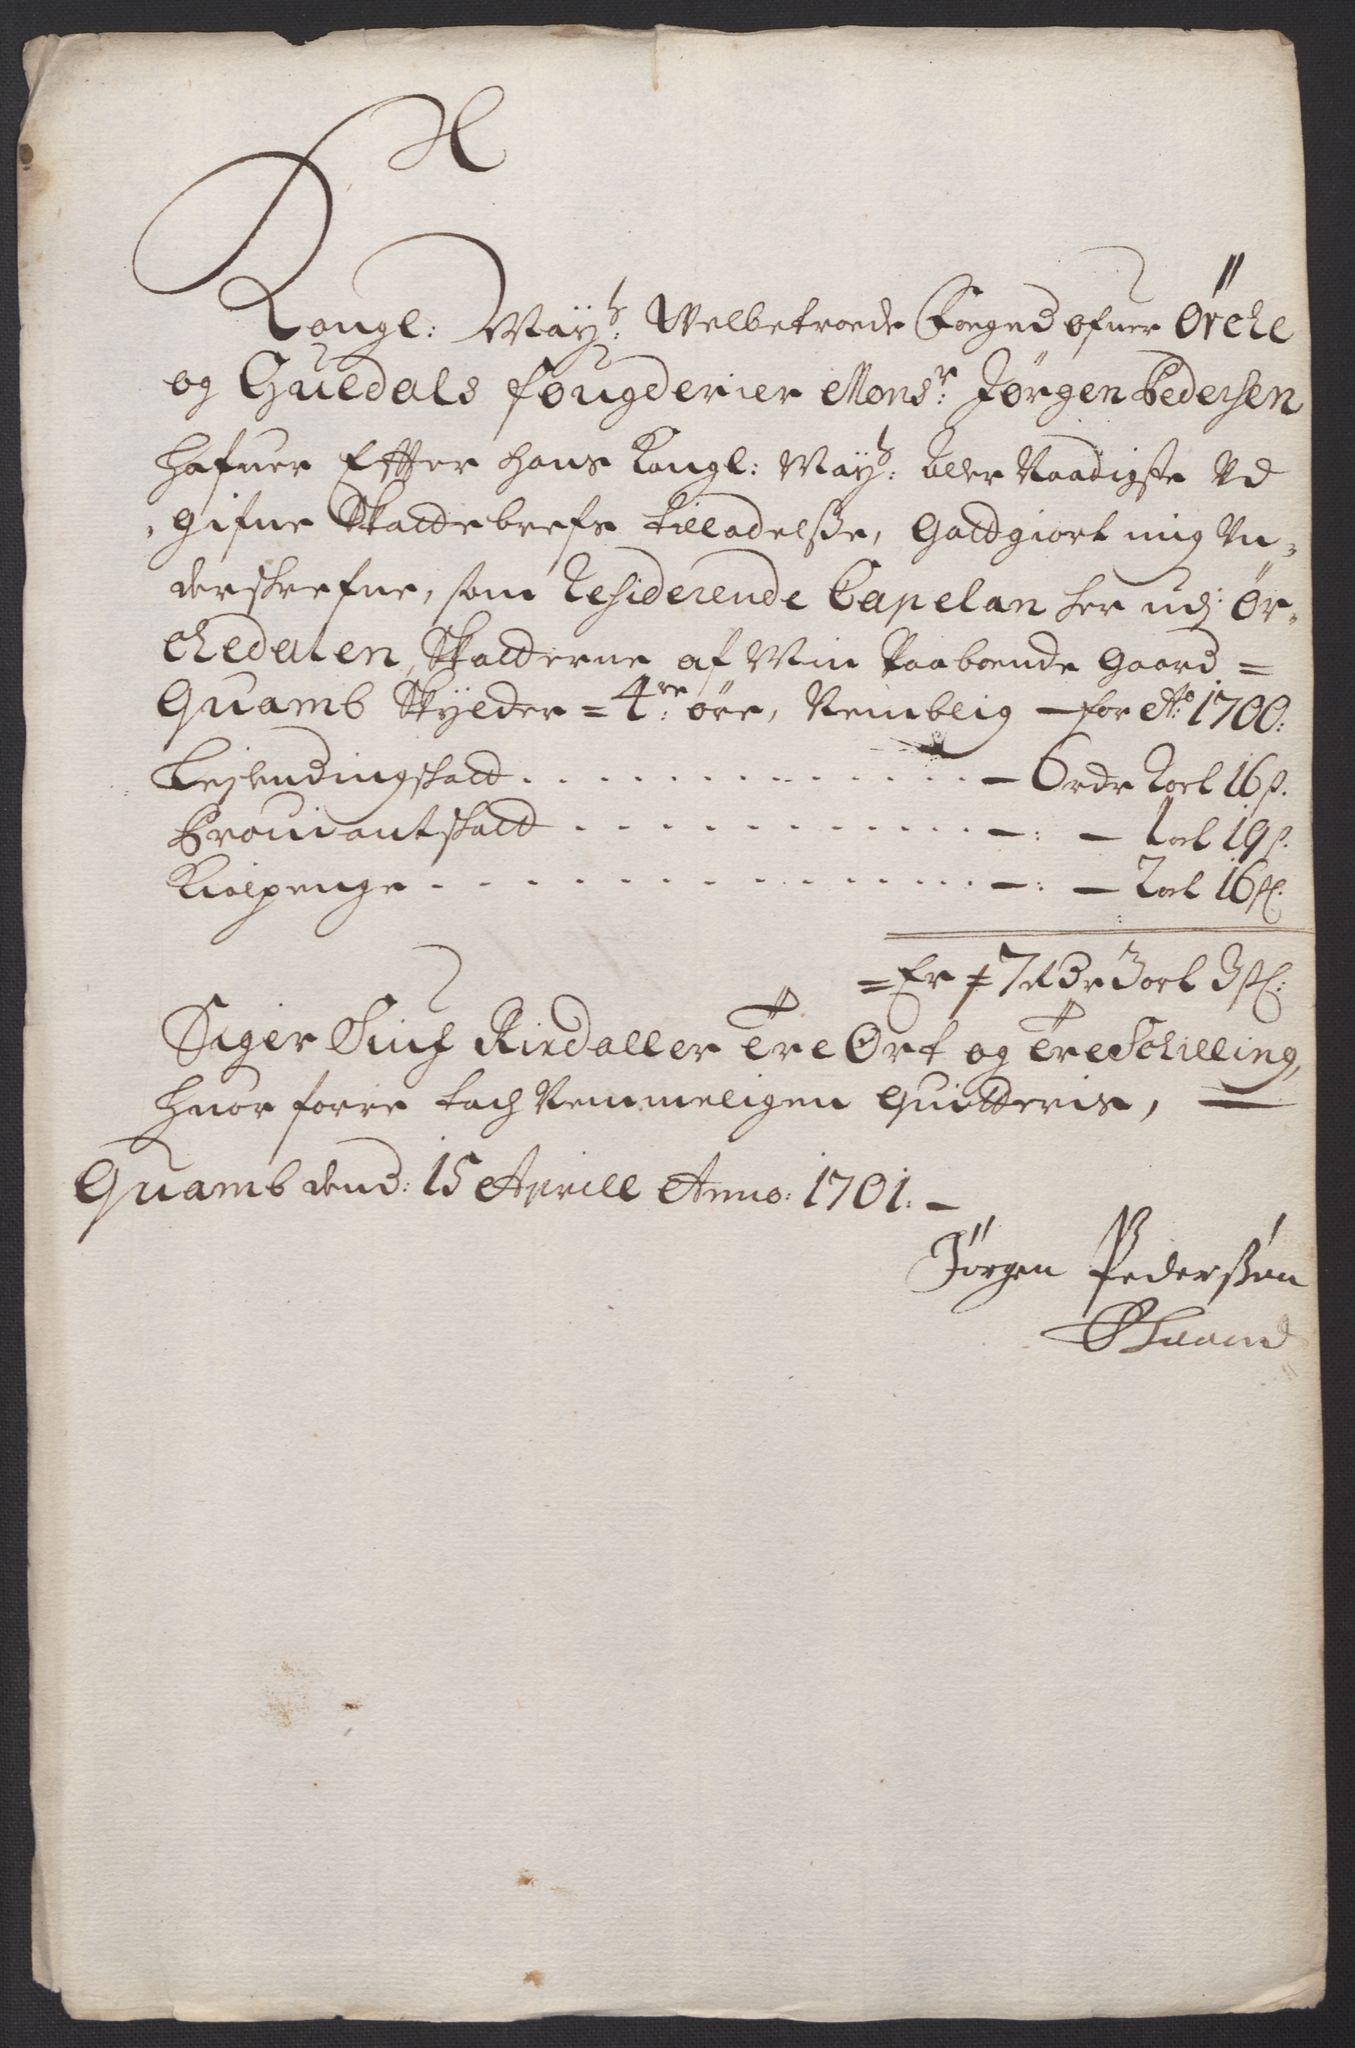 Kongl: May:ts Welbetroede Foeged ofuer Örche
og Guldals fougderier Mons:r Jörgen Pedersen
hafuer Effter hans Kongl: May:ts aller Naadigste Ud
gifne Skattebrefs tilladelsse, Gottgiort mig Un-
derskrefne, som Residerende Capelan her udj: Ör-
chedalen, Skatterne af Min Paaboende Gaard =
Quamb Skylder = 4:re öre, Nemblig - for Ao: 1700:
Leilendingskatt - 6 rdr 2 ort 16 s.
Proviantskatt - 1 ort 19 s.
Kiolpenge - 2 ort 16 sl.
= Er 7 Rdr 3 ort 3 sl:
Siger Siuf Rixdaller Tre Ort og Tre Schilling,
huor forre tach Nemmeligen Quitteris,
Quamb dend: 15 Aprill Anno: 1701.
Jörgen Pederssön